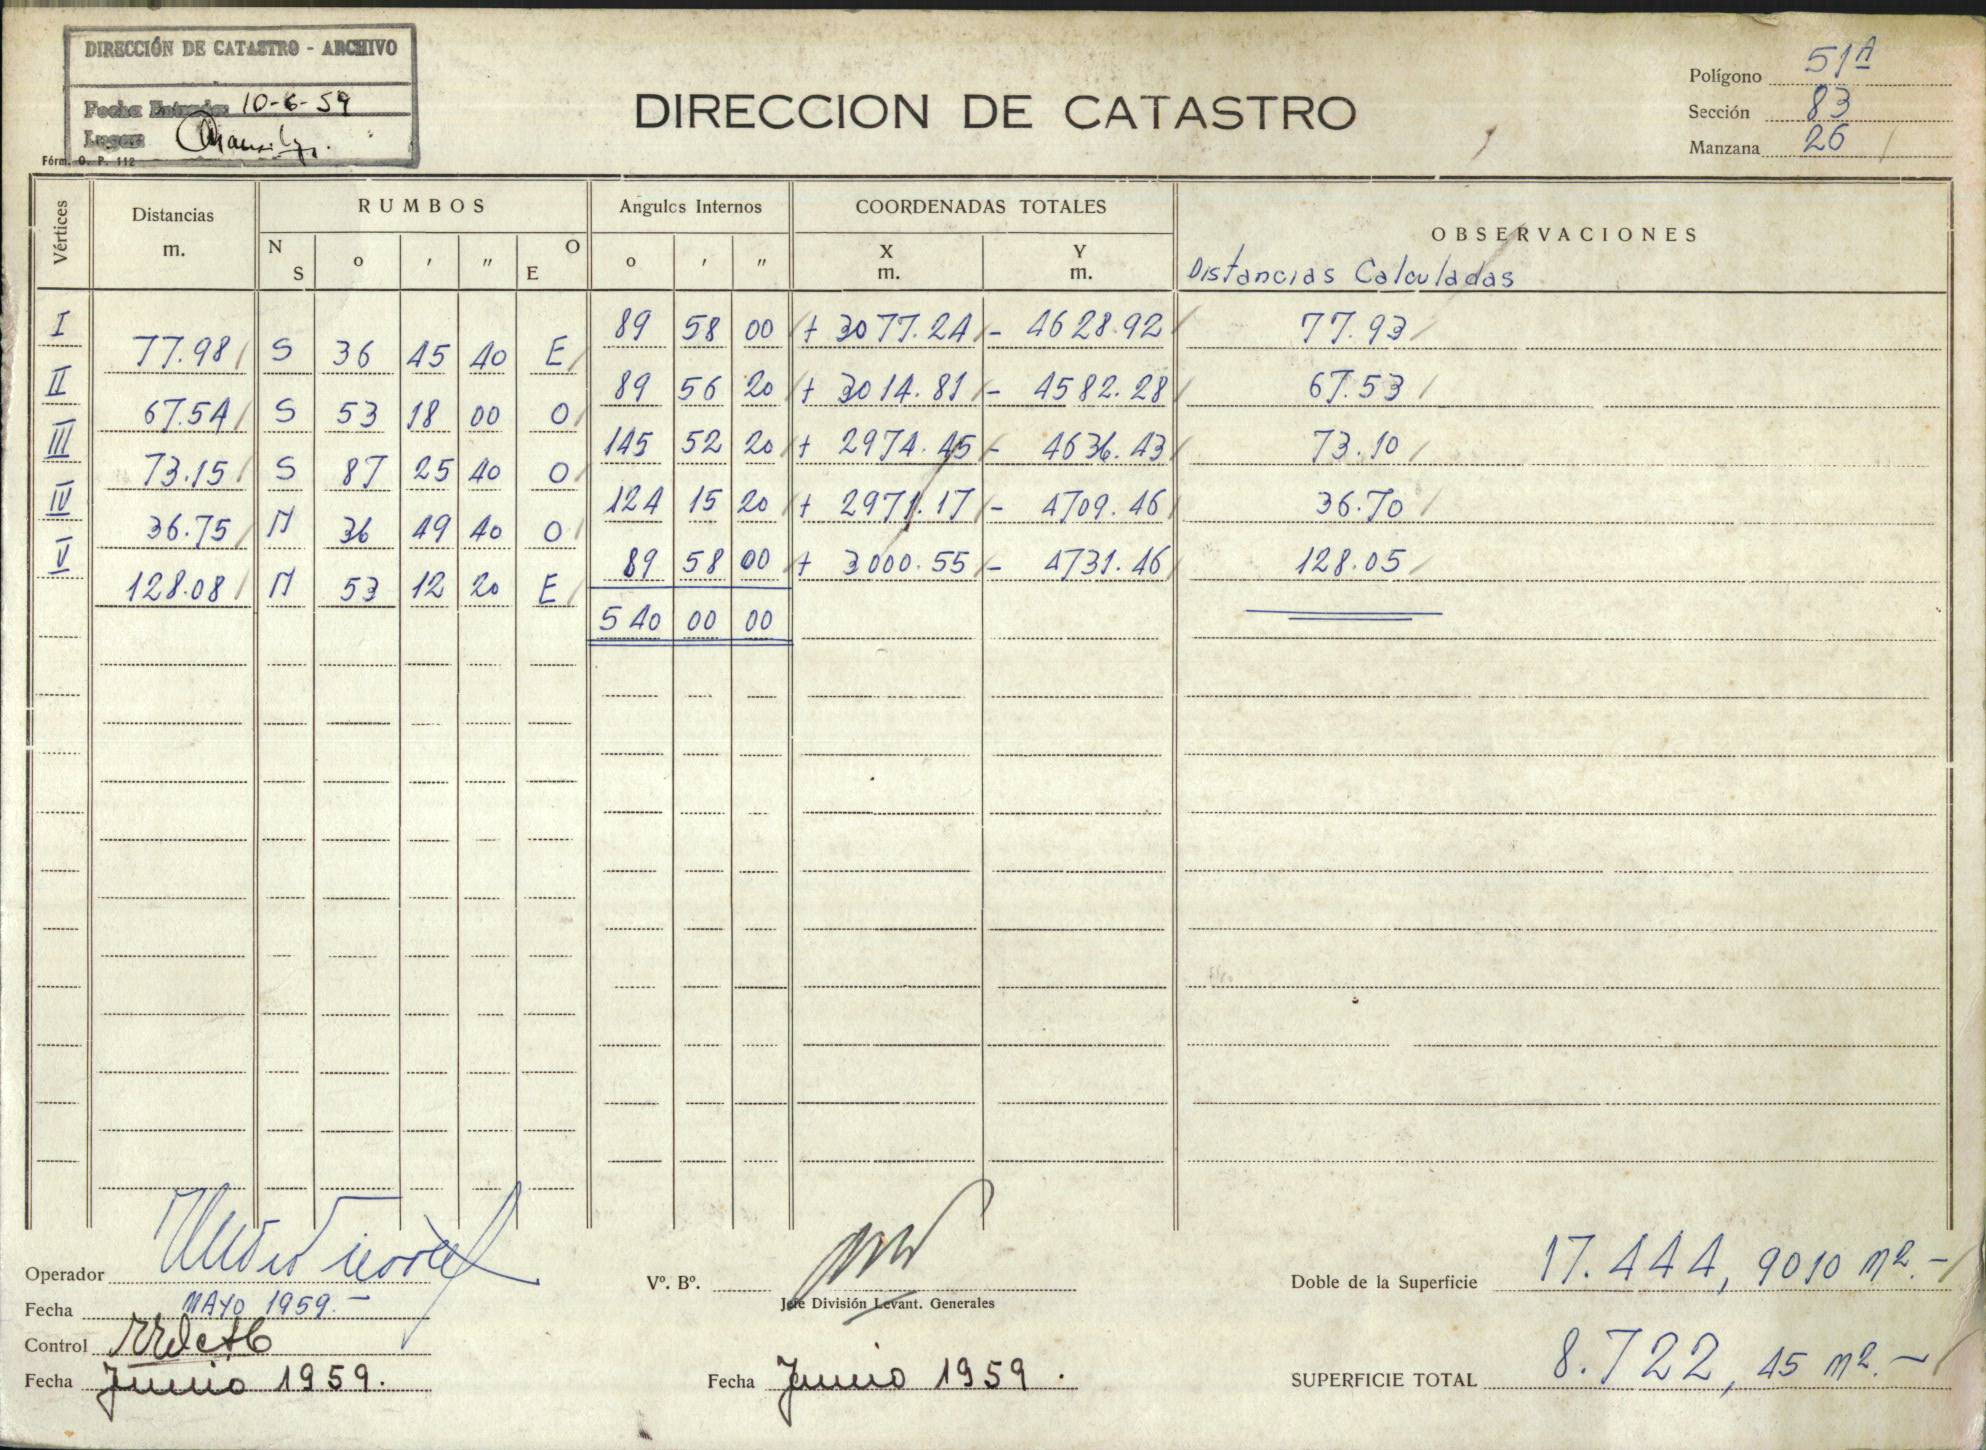 DIRECCIÓN DE CATASTRO - ARCHIVO
Fecha Entrada: 10-6-59
Legajo:
Fórm. O. P. 112
DIRECCION DE CATASTRO
Polígono 51A
Sección 83
Manzana 26
Vértices Distancias m. RUMBOS Angulos Internos COORDENADAS TOTALES OBSERVACIONES
N S o ′ ″ O E o ′ ″ X m. Y m. Distancias Calculadas
I 89 58 00 + 3077.24 - 4628.92 77.93
77.98 S 36 45 40 E
II 89 56 20 + 3014.81 - 4582.28 67.53
67.54 S 53 18 00 O
III 145 52 20 + 2974.45 - 4636.43 73.10
73.15 S 87 25 40 O
IV 124 15 20 + 2971.17 - 4709.46 36.70
36.75 N 36 49 40 O
V 89 58 00 + 3000.55 - 4731.46 128.05
128.08 N 53 12 20 E
540 00 00
Operador
Fecha MAYO 1959.-
Control
Fecha Junio 1959.
Vº. Bº.
Jefe División Levant. Generales
Fecha Junio 1959.
Doble de la Superficie 17.444,9010 m2.-
SUPERFICIE TOTAL 8.722,45 m2.-